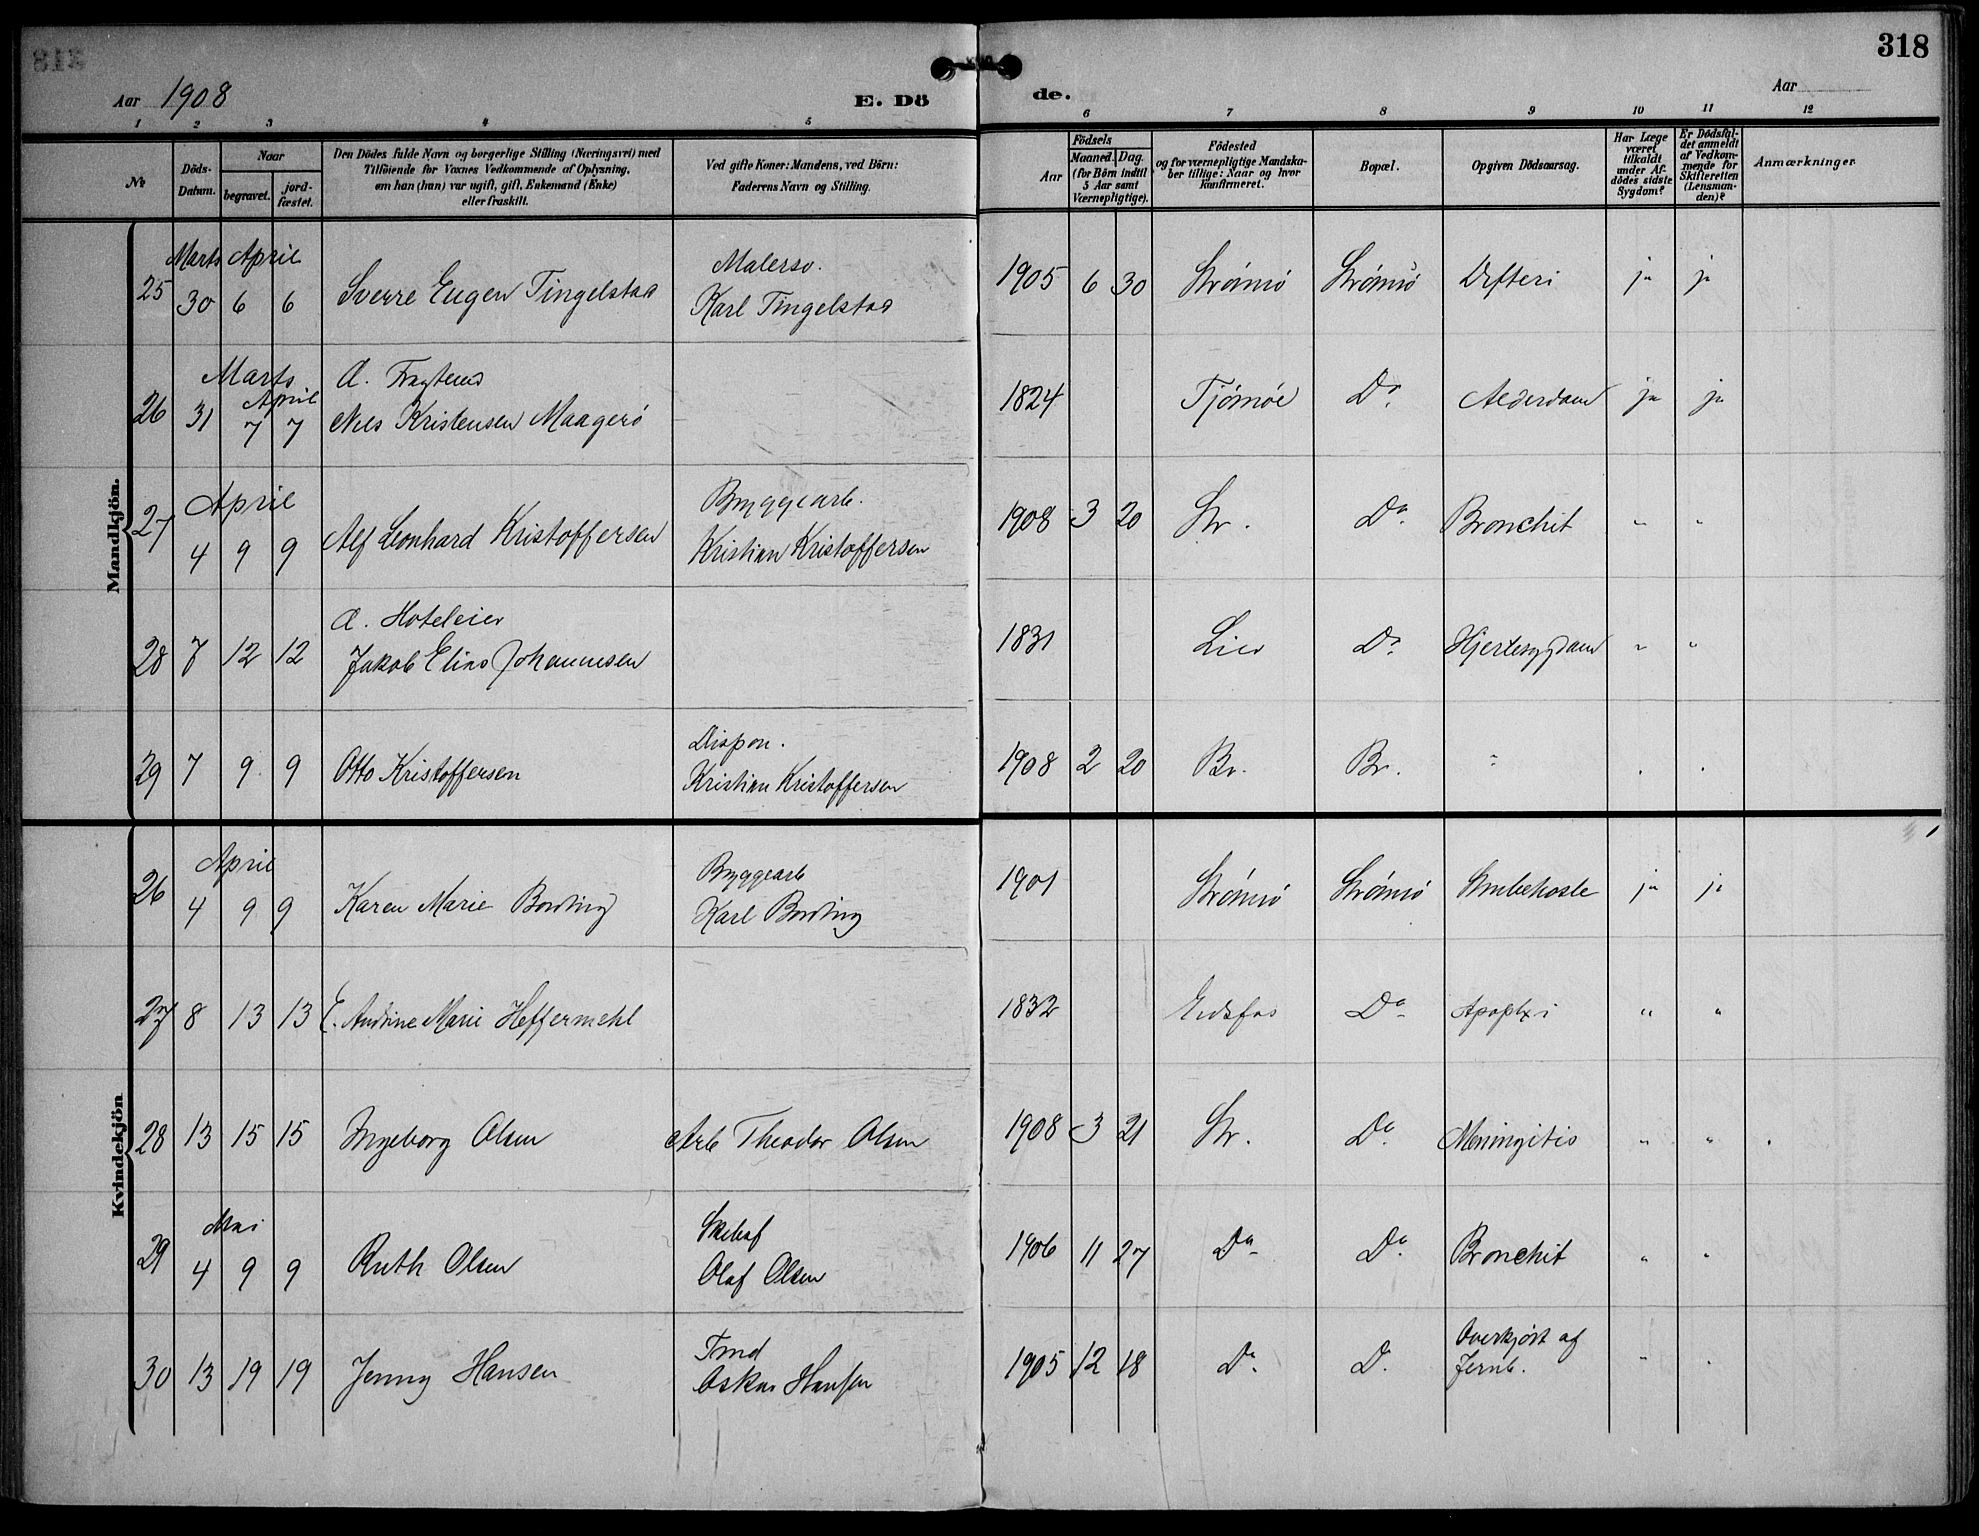 318
Aar 1908
E. Dö
de.
Aar
318
1 2 3 4 5 6 7 8 9 10 11 12
No
Döds-Datum.
Naar
begravet.
jord-fæstet.
Den Dödes fulde Navn og borgerlige Stilling (Næringsvei) med
Tilföiende for Voxnes Vedkommende af Oplysning,
om han (hun) var ugift, gift, Enkemand (Enke)
eller fraskilt.
Ved gifte Koner: Mandens, ved Börn:
Faderens Navn og Stilling.
Födsels
Aar
Maaned. Dag.
(for Börn indtil
5 Aar samt
Værnepligtige).
Födested
og for værnepligtige Mandska-
ber tillige: Naar og hvor
Konfirmeret.
Bopæl.
Opgiven Dödsaarsag.
Har Læge
været
tilkaldt
under Af-
dödes sidste
Sygdom?
Er Dödsfal-
det anmeldt
af Vedkom-
mende for
Skifteretten
(Lensman-
den)?
Anmærkninger.
Mandkjön.
Marts April Malersv.
25 30 6 6 Sverre Eugen Tingelstad Karl Tingelstad 1905 6 30 Strømsø Strømsø Difteri ja ja
Marts April
26 31 7 7 Nils Kristensen Maagerö 1824 Tjømøe Do. Alderdom ja ja
April Byggearb.
27 4 9 9 Alf Leonhard Kristoffersen Kristian Kristoffersen 1908 3 20 Str. Do. Bronchit " "
Hoteleier
28 7 12 12 Jakob Elias Johannesen 1831 Lier Do. Hjertesygdom " "
Dispon.
29 7 9 9 Otto Kristoffersen Kristian Kristoffersen 1908 2 20 Br. Br. "
Kvindekjön
April Byggearb
26 4 9 9 Karen Marie Bording Karl Bording 1901 Strømsø Strømsø Strubehoste ja ja
27 8 13 13 E. Andrine Marie Heffermehl 1832 Eidsfos Do. Apoplexi " "
28 13 15 15 Ingeborg Olsen Arb Theodor Olsen 1908 3 21 Str. Do. Meningitis " "
Mai
29 4 9 9 Ruth Olsen Olaf Olsen 1906 11 27 Do. Do. Bronchit " "
Tmd
30 13 19 19 Jenny Hansen Oskar Hansen 1905 12 18 Do. Do. Overkjørt af
Jernb. "